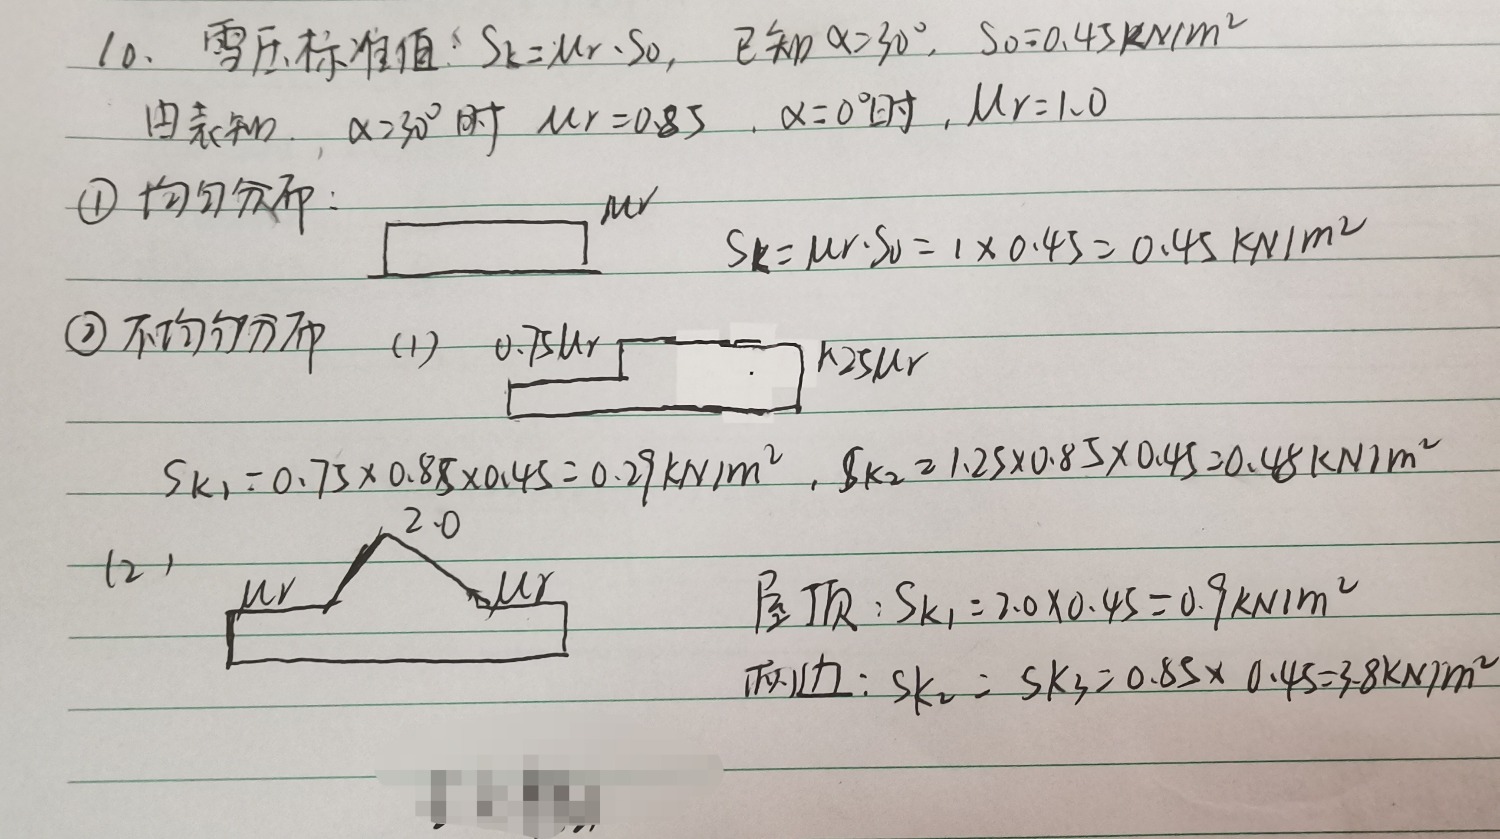 10. 雪压标准值: Sk=μr·S0, 已知 α=30°, S0=0.45KN/m²
由表知, α=30°时 μr=0.85, α=0°时, μr=1.0
① 均匀分布: μr Sk=μr·S0=1×0.45=0.45KN/m²
② 不均匀分布 (1) 0.75μr 1.25μr
SK1=0.75×0.85×0.45=0.29KN/m², SK2=1.25×0.85×0.45=0.48KN/m²
(2) 2.0
μr μr 屋顶: SK1=2.0×0.45=0.9KN/m²
两边: SK2=SK3=0.85×0.45=3.8KN/m²